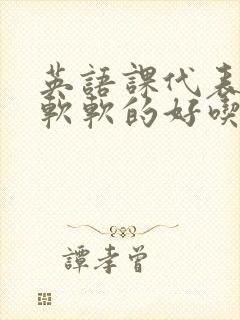 英語課代表
軟軟的好喫
譚孝曾